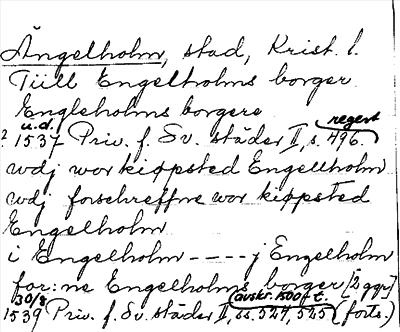 Ängelholm, stad, Krist. l.
Tüll Engelholms borger
Engleholms borgere
u.d. regest
2 1537 Priv. f. Sv. städer II, s. 496.
wdj wor kiøpsted Engellholm
wdj forschreffne wor kiøpsted
Engelholm
i Engelholm ---- j Engelholm
for:ne Engelholms borger [2 ggr]
30/8 avskr. 1500-t.
1539 Priv. f. Sv. städer II, ss. 524, 525 (forts.)